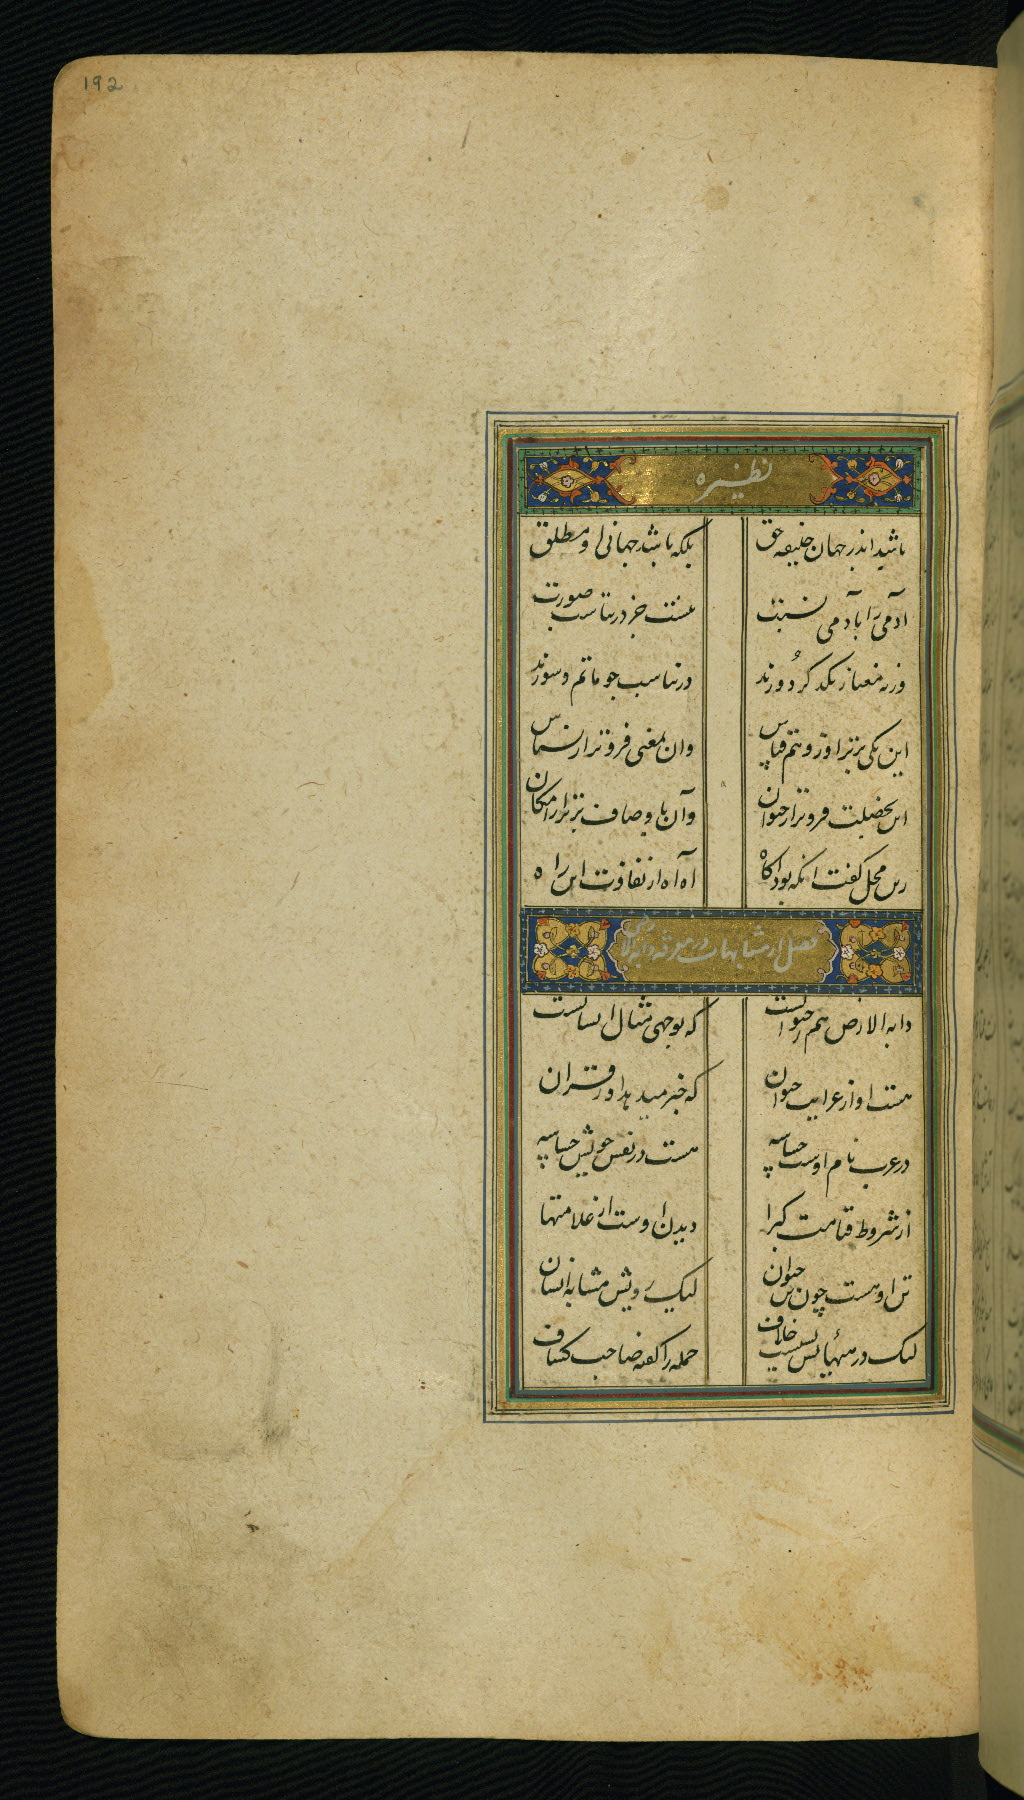 192
نظیره
باشد اندر جهان خلیفه حق بلکه باشد جهانی او مطلق
آدمی را بآدمی نسبت نیست جز در تناسب صورت
ورنه معنا ز یکدگر دورند در تناسب چو ماتم و سورند
این یکی برتر از وهم قیاس وان بمعنی فروتر از نسناس
این بخصلت فروتر از حیوان وآن باوصاف برتر از امکان
زین محل گفت آنکه بود آگاه آه آه از تفاوت این راه
فصل از مشابهات در معرفه دابه الارض
دابه الارض هم ز حیوانست که بوجهی مثال انسانست
هست او از غرایب حیوان که خبر میدهد ازو قرآن
در عرب نام اوست جساسه هست در نفس خویش حساسه
از شروط قیامت کبرا دیدن اوست از علامتها
تن او هست چون تن حیوان لیک رویش مشابه انسان
لیک در هیأتش بسیست خلاف جمله را گفته صاحب کشاف